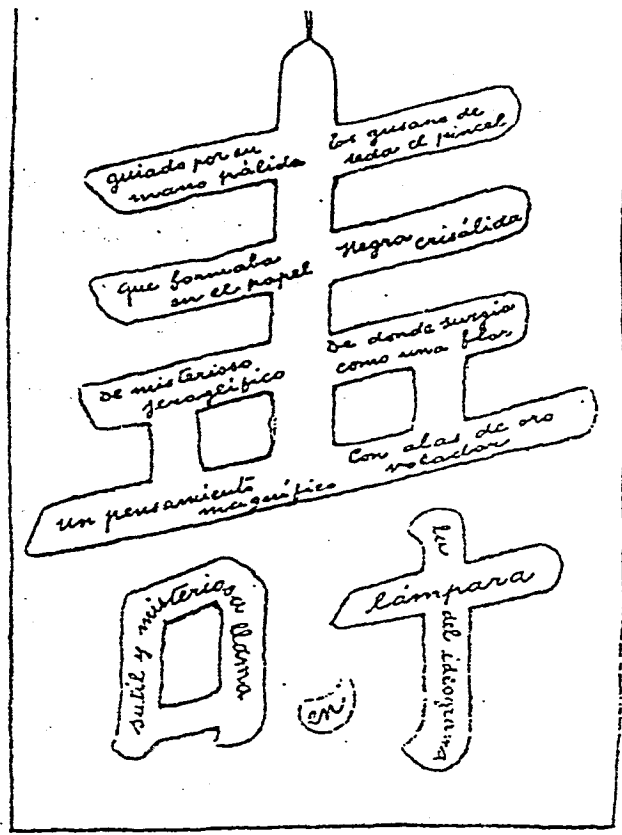 guiado por su
mano pálida
es gusano de
seda el pincel
que formaba
en el papel
negra crisálida
de misterioso
jeroglífico
de donde surgía
como una flor
un pensamiento
magnífico
con alas de oro
volador
sutil y misteriosa llama
en
la
lámpara
del ideograma